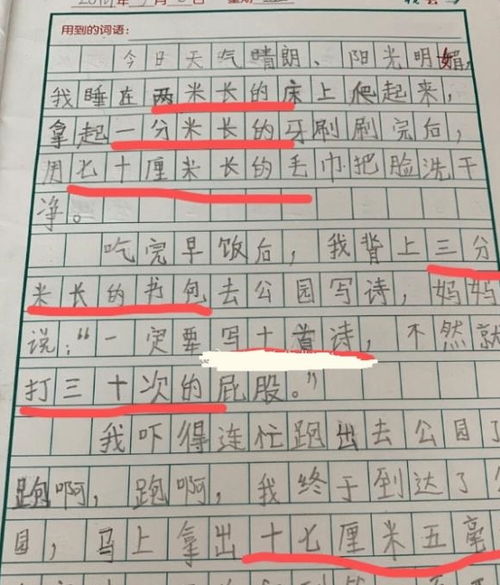 用到的词语:
今日天气晴朗、阳光明媚,
我睡在两米长的床上爬起来,
拿起一分米长的牙刷刷完后,
用七十厘米长的毛巾把脸洗干
净。
吃完早饭后,我背上三分
米长的书包去公园写诗,妈妈
说:“一定要写十首诗,不然就
打三十次的屁股。”
我吓得连忙跑出去公园了
跑啊,跑啊,我终于到达了
园,马上拿出十七厘米五毫